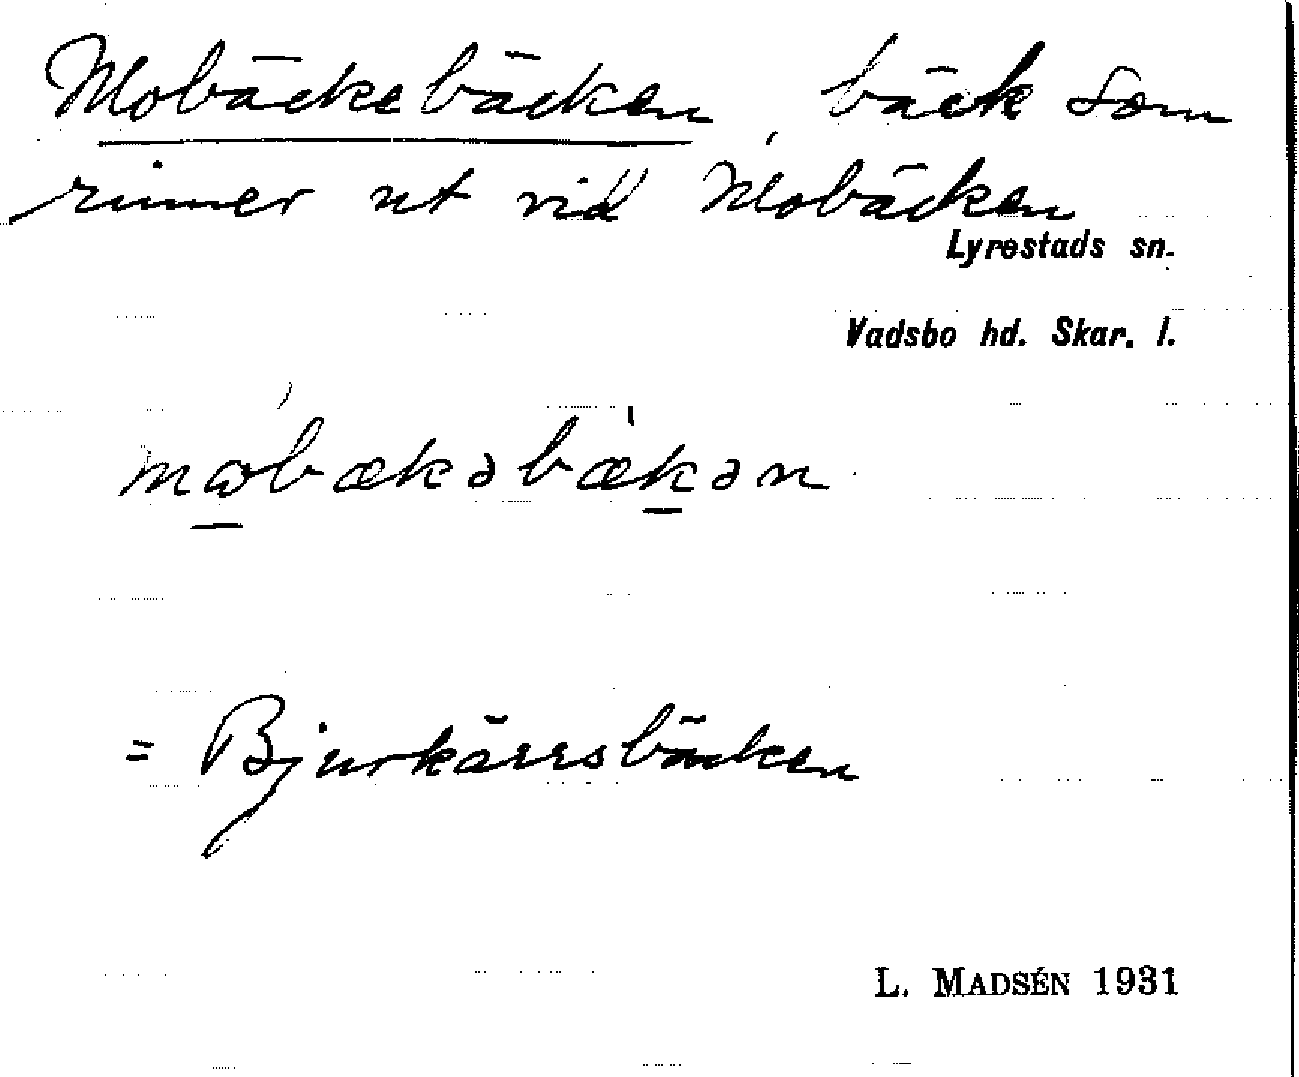 Mobäckebäcken, bäck som
rinner ut vid Mobäcken
Lyrestads sn.
Vadsbo hd. Skar. l.
mωbækəbækən
= Bjurkärrsbäcken
L. MADSÉN 1931